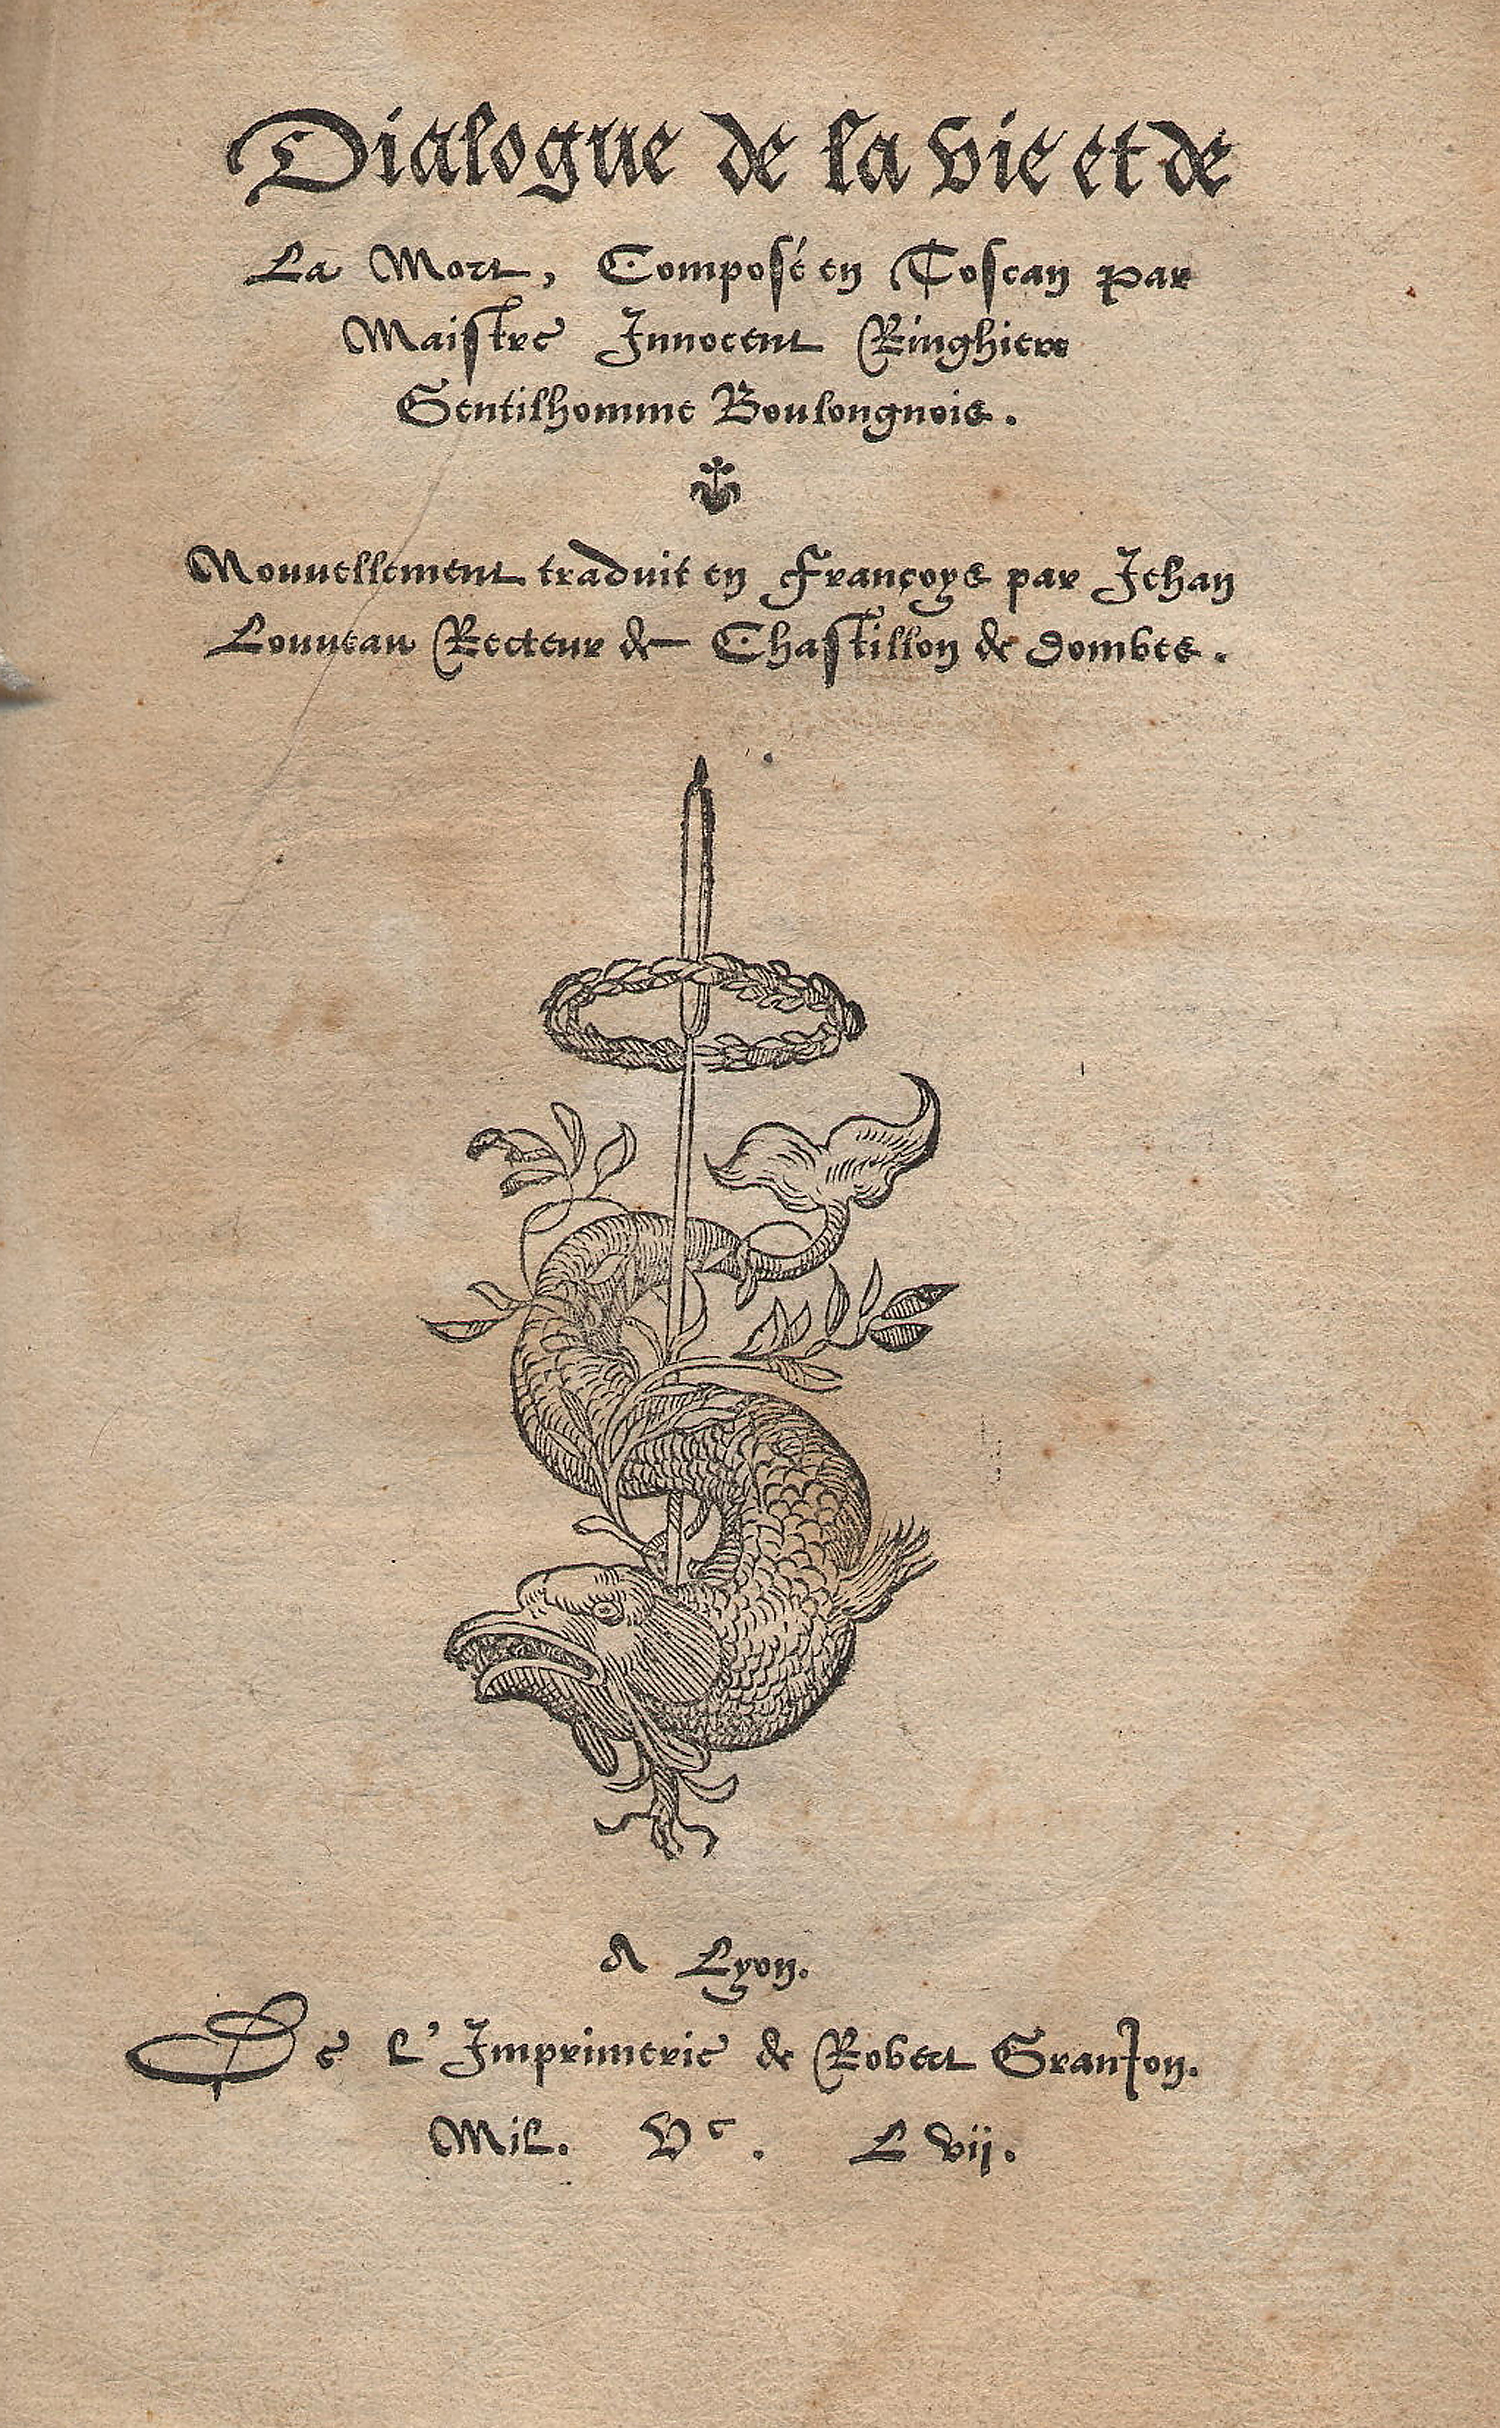 Dialogue de la vie et de
La Mort, Composé en Toscan par
Maistre Innocent Ringhiere
Gentilhomme Boulongnois.
Nouvellement traduit en Françoys par Jehan
Louveau Recteur de Chastillon de Dombes.
A Lyon.
De l'Imprimerie de Robert GranIon.
Mil. Vc. L vij.